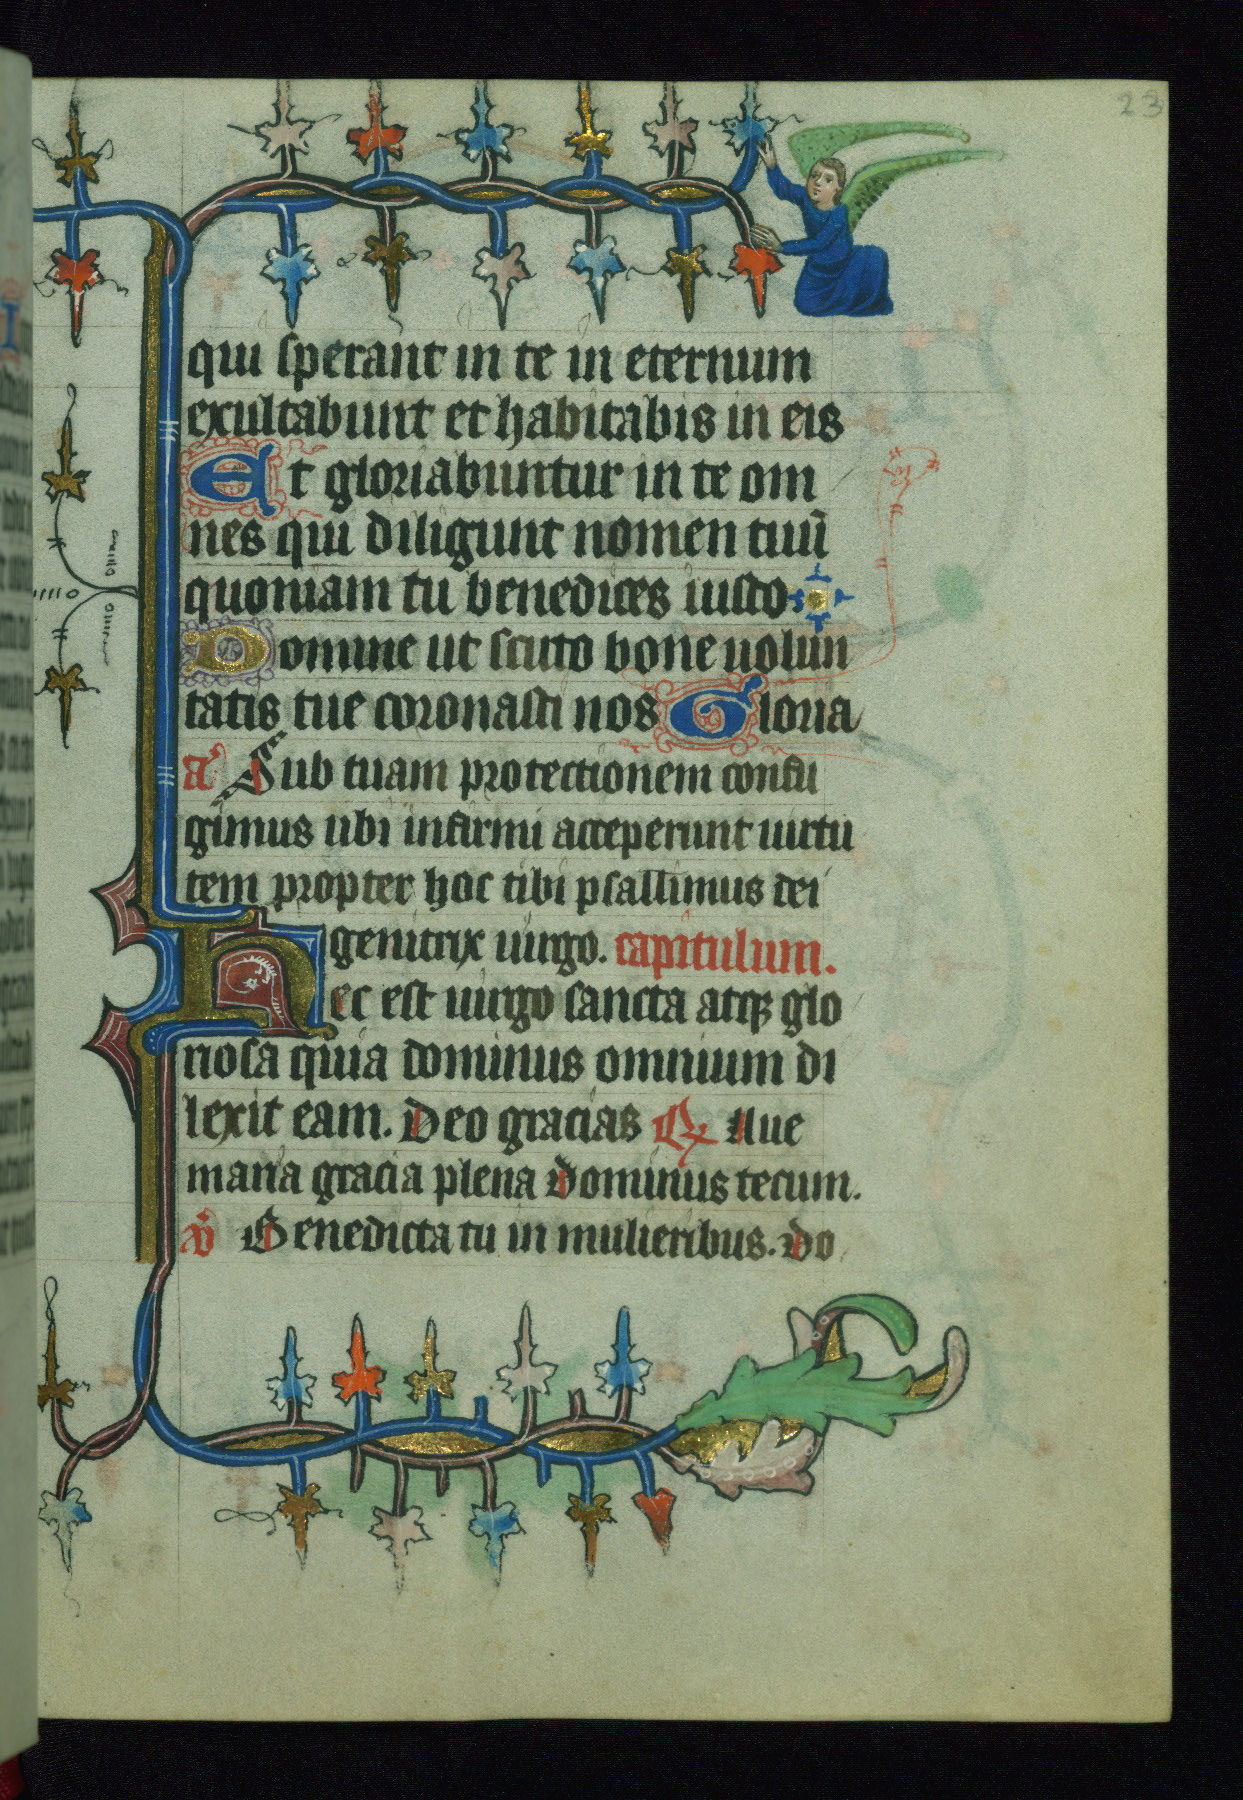 23
qui sperant in te in eternum
exultabunt et habitabis in eis
Et gloriabuntur in te om
nes qui diligunt nomen tuū
quoniam tu benedices iusto
Domine ut scuto bone uolun
tatis tue coronasti nos Gloria
a͛ Sub tuam protectionem confu
gimus ubi infirmi acceperunt uirtu
tem propter hoc tibi psallimus dei
genitrix uirgo. capitulum.
Hec est uirgo sancta atqꝫ glo
riosa quia dominus omnium di
lexit eam. Deo gracias Aue
maria gracia plena Dominus tecum.
Benedicta tu in mulieribus. Do